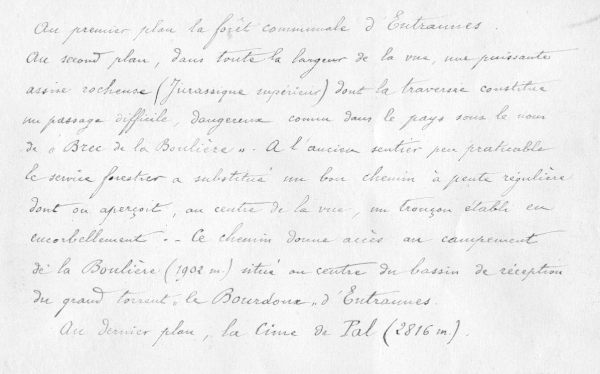 Au premier plan la forêt communale d'Entraunes.
Au second plan, dans toute la largeur de la vue, une puissante
assise rocheuse (Jurassique supérieur) dont la traversée constitue
un passage difficile, dangereux connu dans le pays sous le nom
de "Brec de la Boulière". A l'ancien sentier peu praticable
le service forestier a substitué un bon chemin à pente régulière
dont on aperçoit, au centre de la vue, un tronçon établi en
encorbellement. - Ce chemin donne accès au campement
de la Boulière (1902 m.) situé au centre du bassin de réception
du grand torrent "le Bourdoux" d'Entraunes.
Au dernier plan, la Cime de Pal (2816 m.).